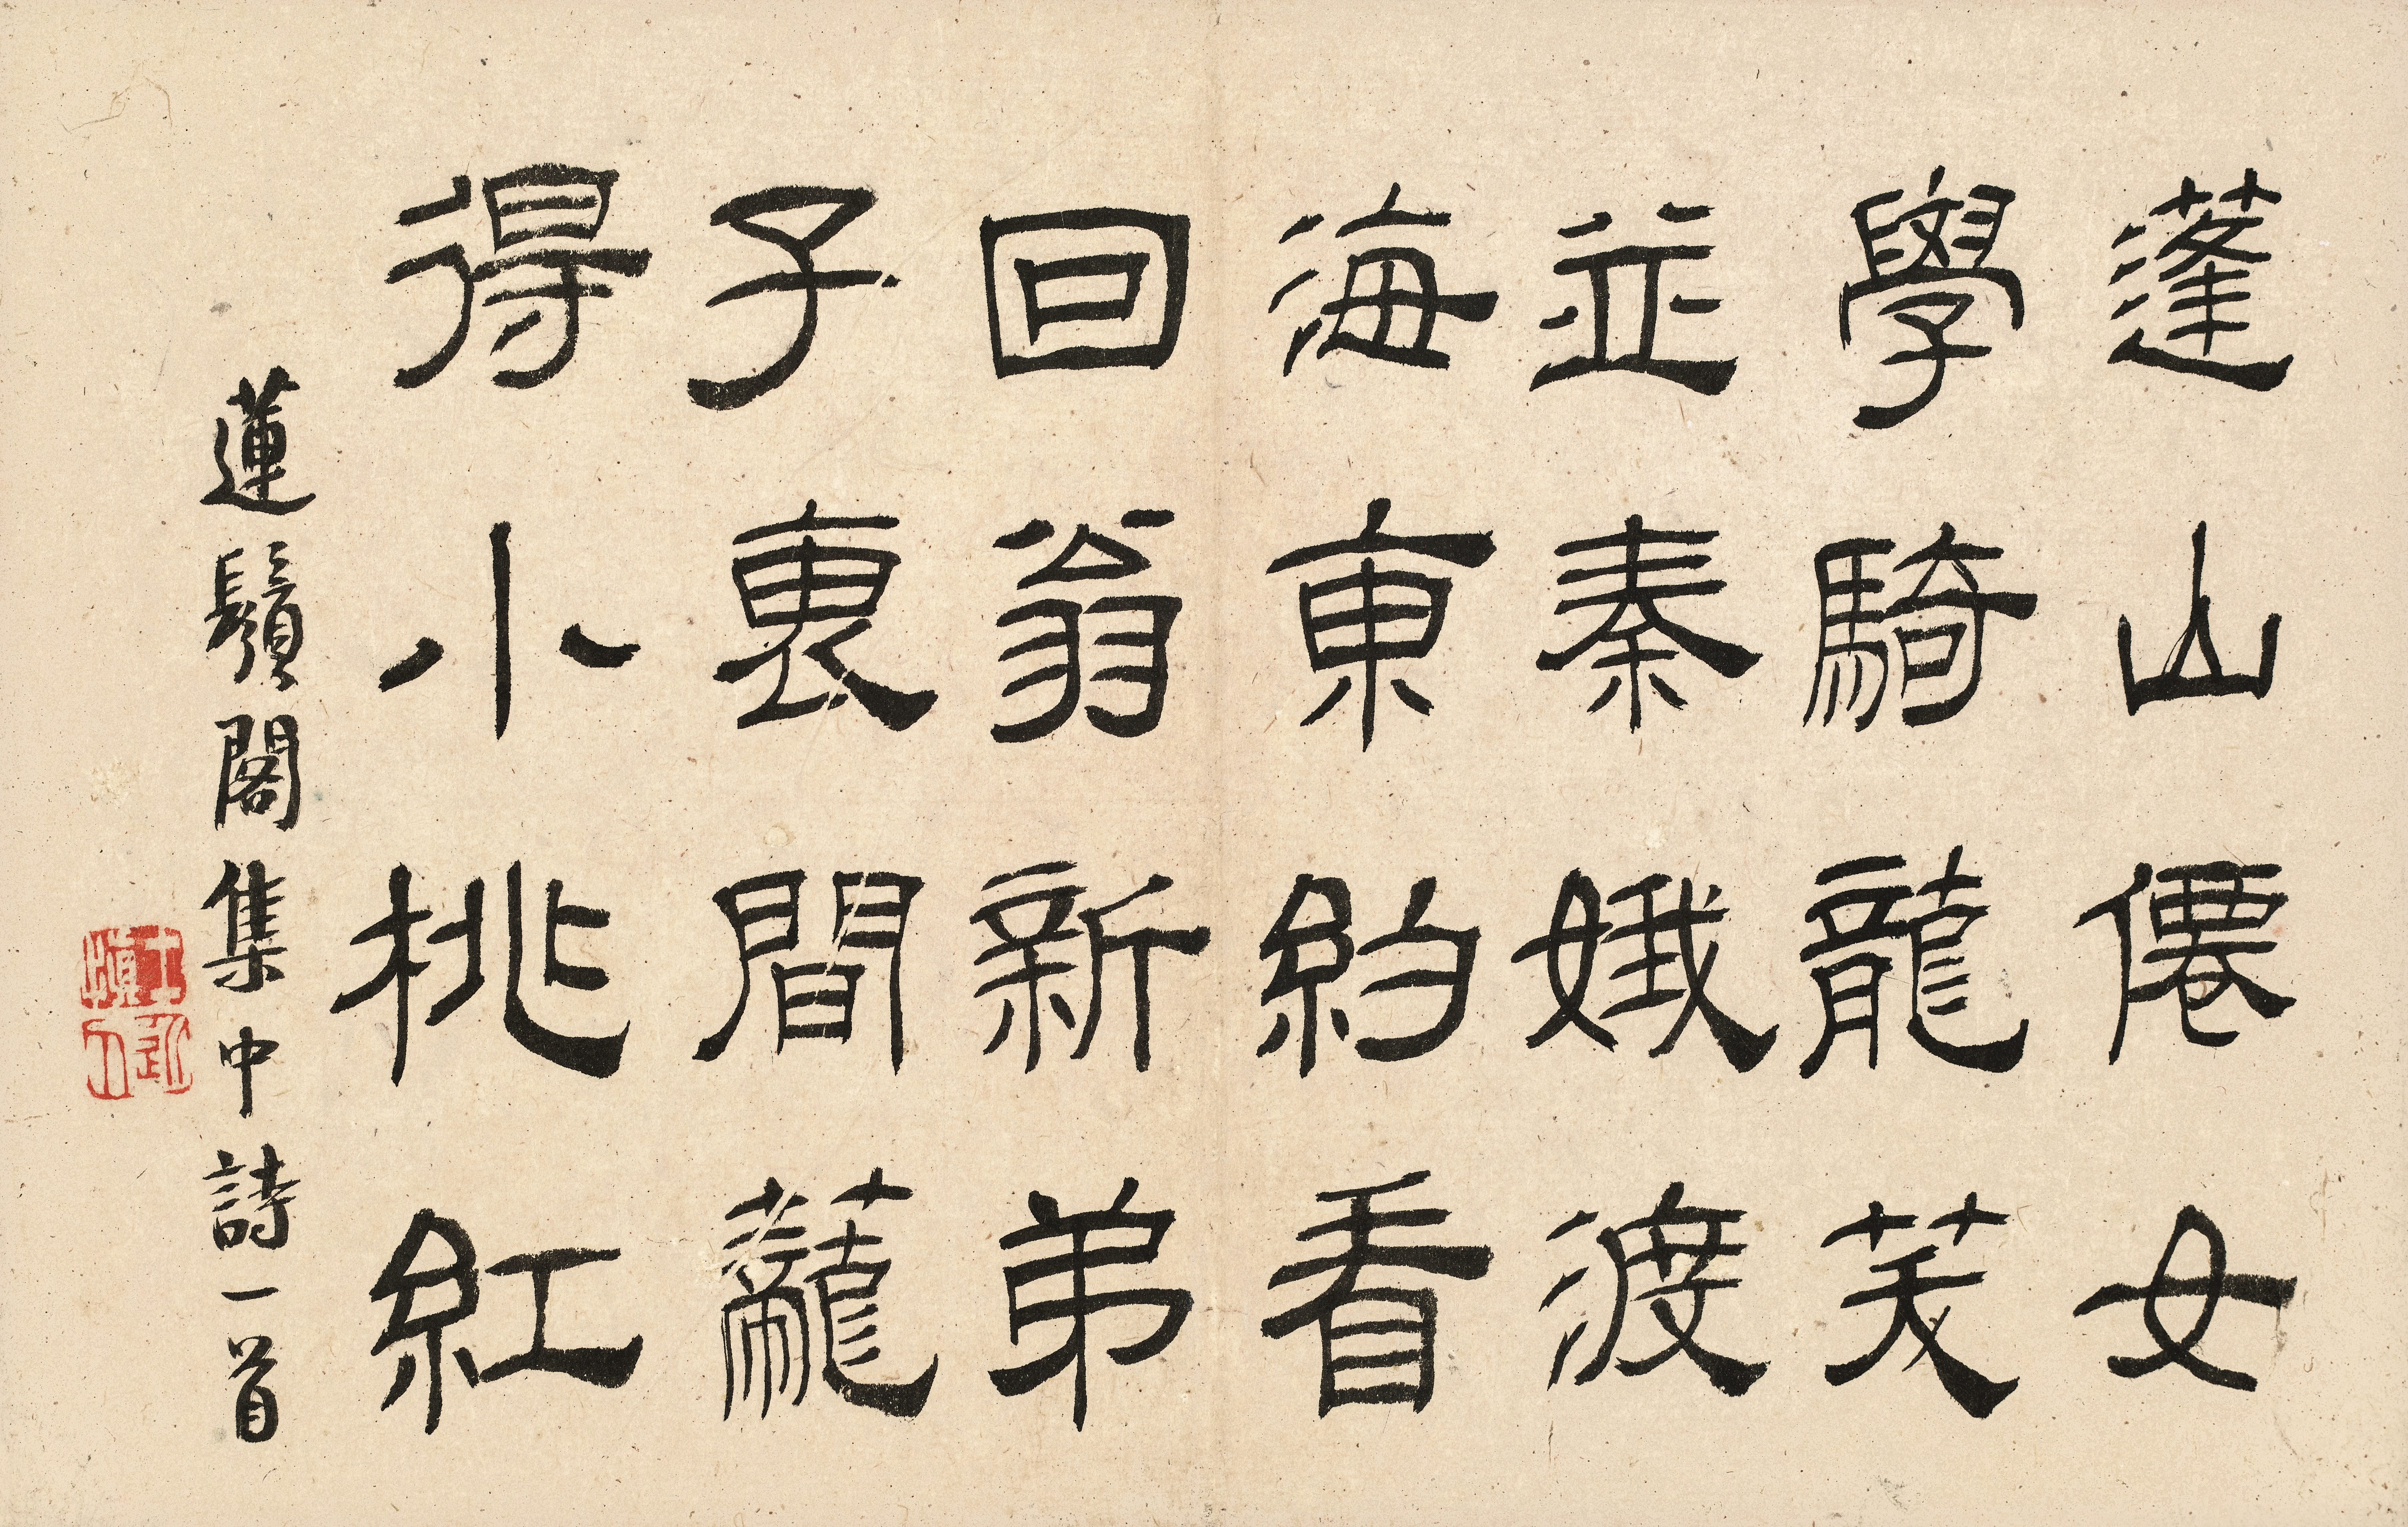 蓬山僊女
學騎龍笑
並秦娥渡
海東約看
回翁新弟
子裏間蘢
得小桃紅
蓮鬚閣集中詩一首